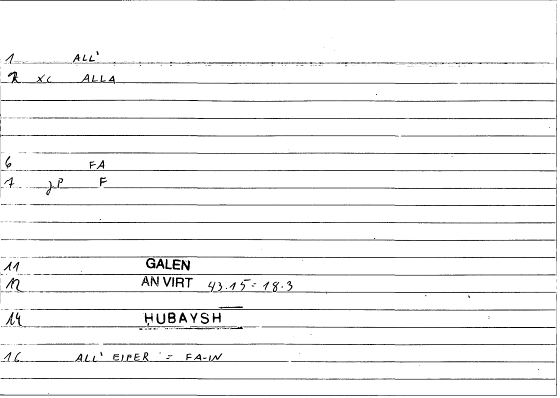 1 ALL'
2 XC ALLA
6 FA
7 JP F
11 GALEN
12 AN VIRT 43.15 = 18.3
14 HUBAYSH
16 ALL' EIPER = FA-IN